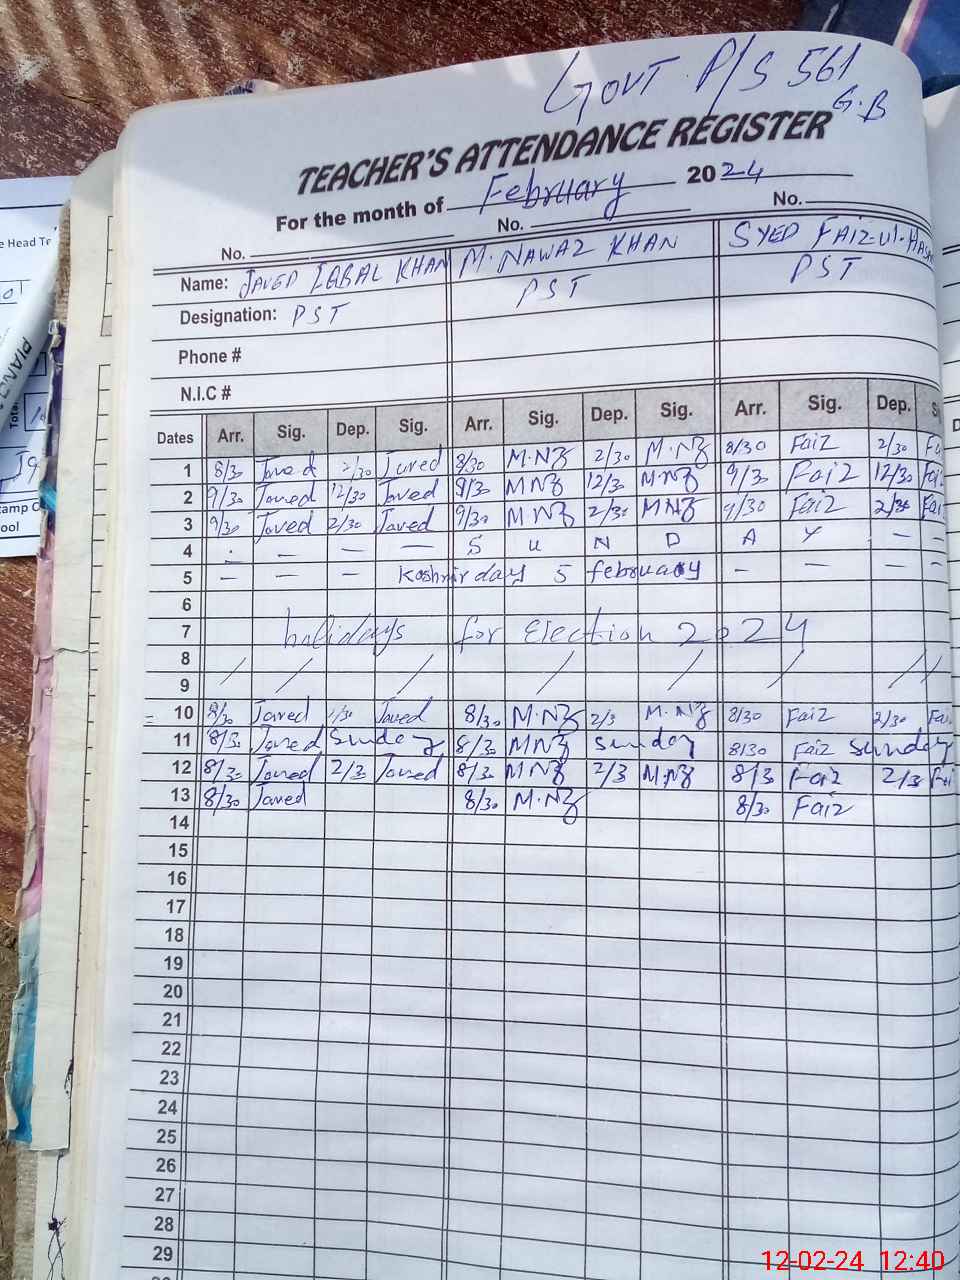 GOVT P/S 561
G.B
TEACHER'S ATTENDANCE REGISTER
For the month of February 2024
No. No. No.
Name: JAVED IQBAL KHAN M. NAWAZ KHAN SYED FAIZ-Ul-HAS
Designation: PST PST PST
Phone #
N.I.C #
Dates Arr. Sig. Dep. Sig. Arr. Sig. Dep. Sig. Arr. Sig. Dep. S
1 8/30 Javed 2/30 Javed 8/30 M.NZ 2/30 M.NZ 8/30 Faiz 2/30 Fa
2 9/30 Javed 12/30 Javed 9/30 MNZ 12/30 MNZ 9/30 Faiz 12/30 Fai
3 9/30 Javed 2/30 Javed 9/30 M.NZ 2/30 MNZ 9/30 Faiz 2/30 Fai
4 - - - - S U N D A Y - -
5 - - - Kashmir day 5 february - - - -
6
7 holidays for Election 2024
8
9
10 8/30 Javed 2/30 Javed 8/30 M.NZ 2/3 M.NZ 8/30 Faiz 2/30 Fai
11 8/30 Javed Sunday 8/30 MNZ Sunday 8/30 Faiz Sunday
12 8/30 Javed 2/30 Javed 8/30 MNZ 2/3 M.NZ 8/30 Faiz 2/30 Fai
13 8/30 Javed 8/30 M.NZ 8/30 Faiz
14
15
16
17
18
19
20
21
22
23
24
25
26
27
28
29
e Head Te
PIANO
Total
tamp O
ool
12-02-24 12:40